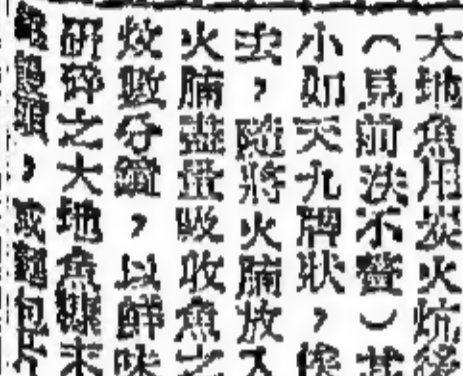 大地魚用炭火炕後
（見前法不贅）其
小如天九牌狀，
，隨將火腩放入
火腩盡量吸收魚之
炆數分鐘，以鮮味
研碎之大地魚末
饅頭，或麵包片